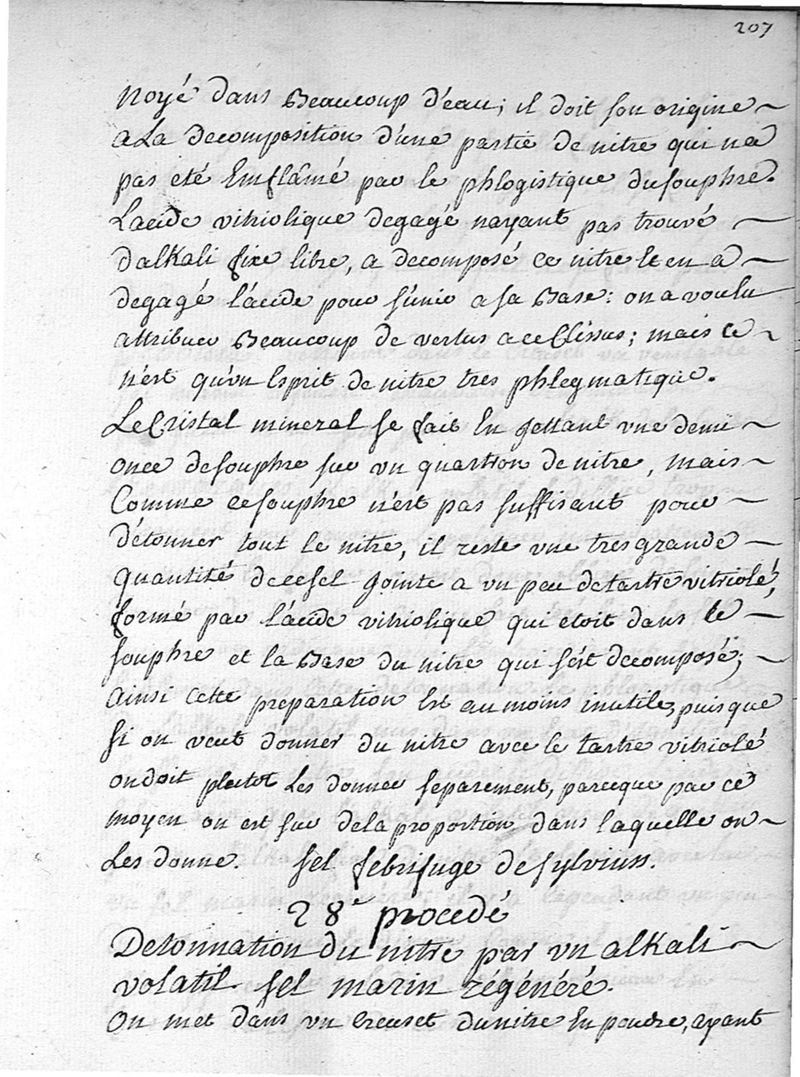 207
Noyé dans Beaucoup d'eau; il doit son origine
a La decomposition d'une partie de nitre qui na
pas eté Emflâmé par le phlogistique du souphre.
L'acide vitriolique degagé nayant pas trouvé
dalkali fixe libre, a decomposé ce nitre et en a
degagé l'acide pour s'unir a sa Base: on a voulu
attribuer Beaucoup de vertus a ce Clissus; mais ce
n'est qu'un Esprit de nitre tres phlegmatique.
Le Cristal mineral se fait En jettant une demi
once de souphre sur un quartron de nitre, mais
Comme ce souphre n'est pas suffisant pour
détonner tout le nitre, il reste une tres grande
quantité de ce sel jointe a un peu de tartre vitriolé,
formé par l'acide vitriolique qui etoit dans le
souphre et la Base du nitre qui s'est decomposé;
ainsi cette preparation Est au moins inutile, puisque
si on veut donner du nitre avec le tartre vitriolé
on doit plutot Les donner separement, parceque par ce
moyen on est sur de la proportion dans laquelle on
Les donne. sel febrifuge de sylvius.
28e procedé
Detonnation du nitre par un alkali
volatil. sel marin régénéré.
On met dans un Creuset du nitre En poudre, ayant